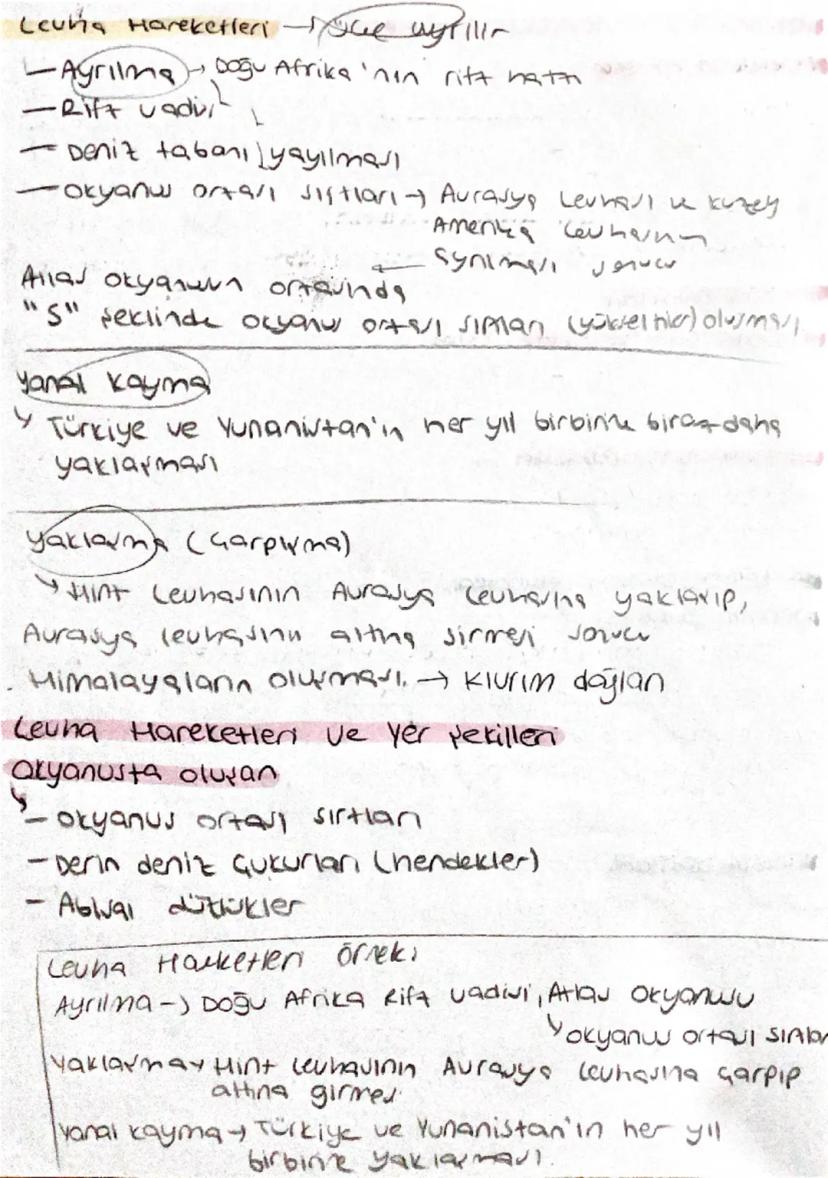 Levha Hareketleri → üçe ayrılır
— Ayrılma → Doğu Afrika'nın rift hattı
— Rift vadisi
— Deniz tabanı yayılması
— Okyanus ortası sırtları → Avrasya Levhası ve Kuzey
Amerika Levhasının
ayrılması sonucu
Atlas okyanusun ortasında
"S" şeklinde okyanus ortası sırtları (yükseltiler) oluşması
Yanal Kayma
Türkiye ve Yunanistan'ın her yıl birbirine biraz daha
yaklaşması
Yaklaşma (Çarpışma)
Hint Levhasının Avrasya Levhasına yaklaşıp,
Avrasya levhasının altına girmesi sonucu
Himalayaların oluşması. → Kıvrım dağları
Levha Hareketleri ve Yer Şekilleri
Okyanusta oluşan
— Okyanus ortası sırtları
— Derin deniz çukurları (hendekler)
— Abisal düzlükler
Levha Hareketleri örneki
Ayrılma → Doğu Afrika Rift vadisi, Atlas Okyanusu
okyanus ortası sırtları
Yaklaşma → Hint levhasının Avrasya levhasına çarpıp
altına girmesi
Yanal kayma → Türkiye ve Yunanistan'ın her yıl
birbirine yaklaşması.